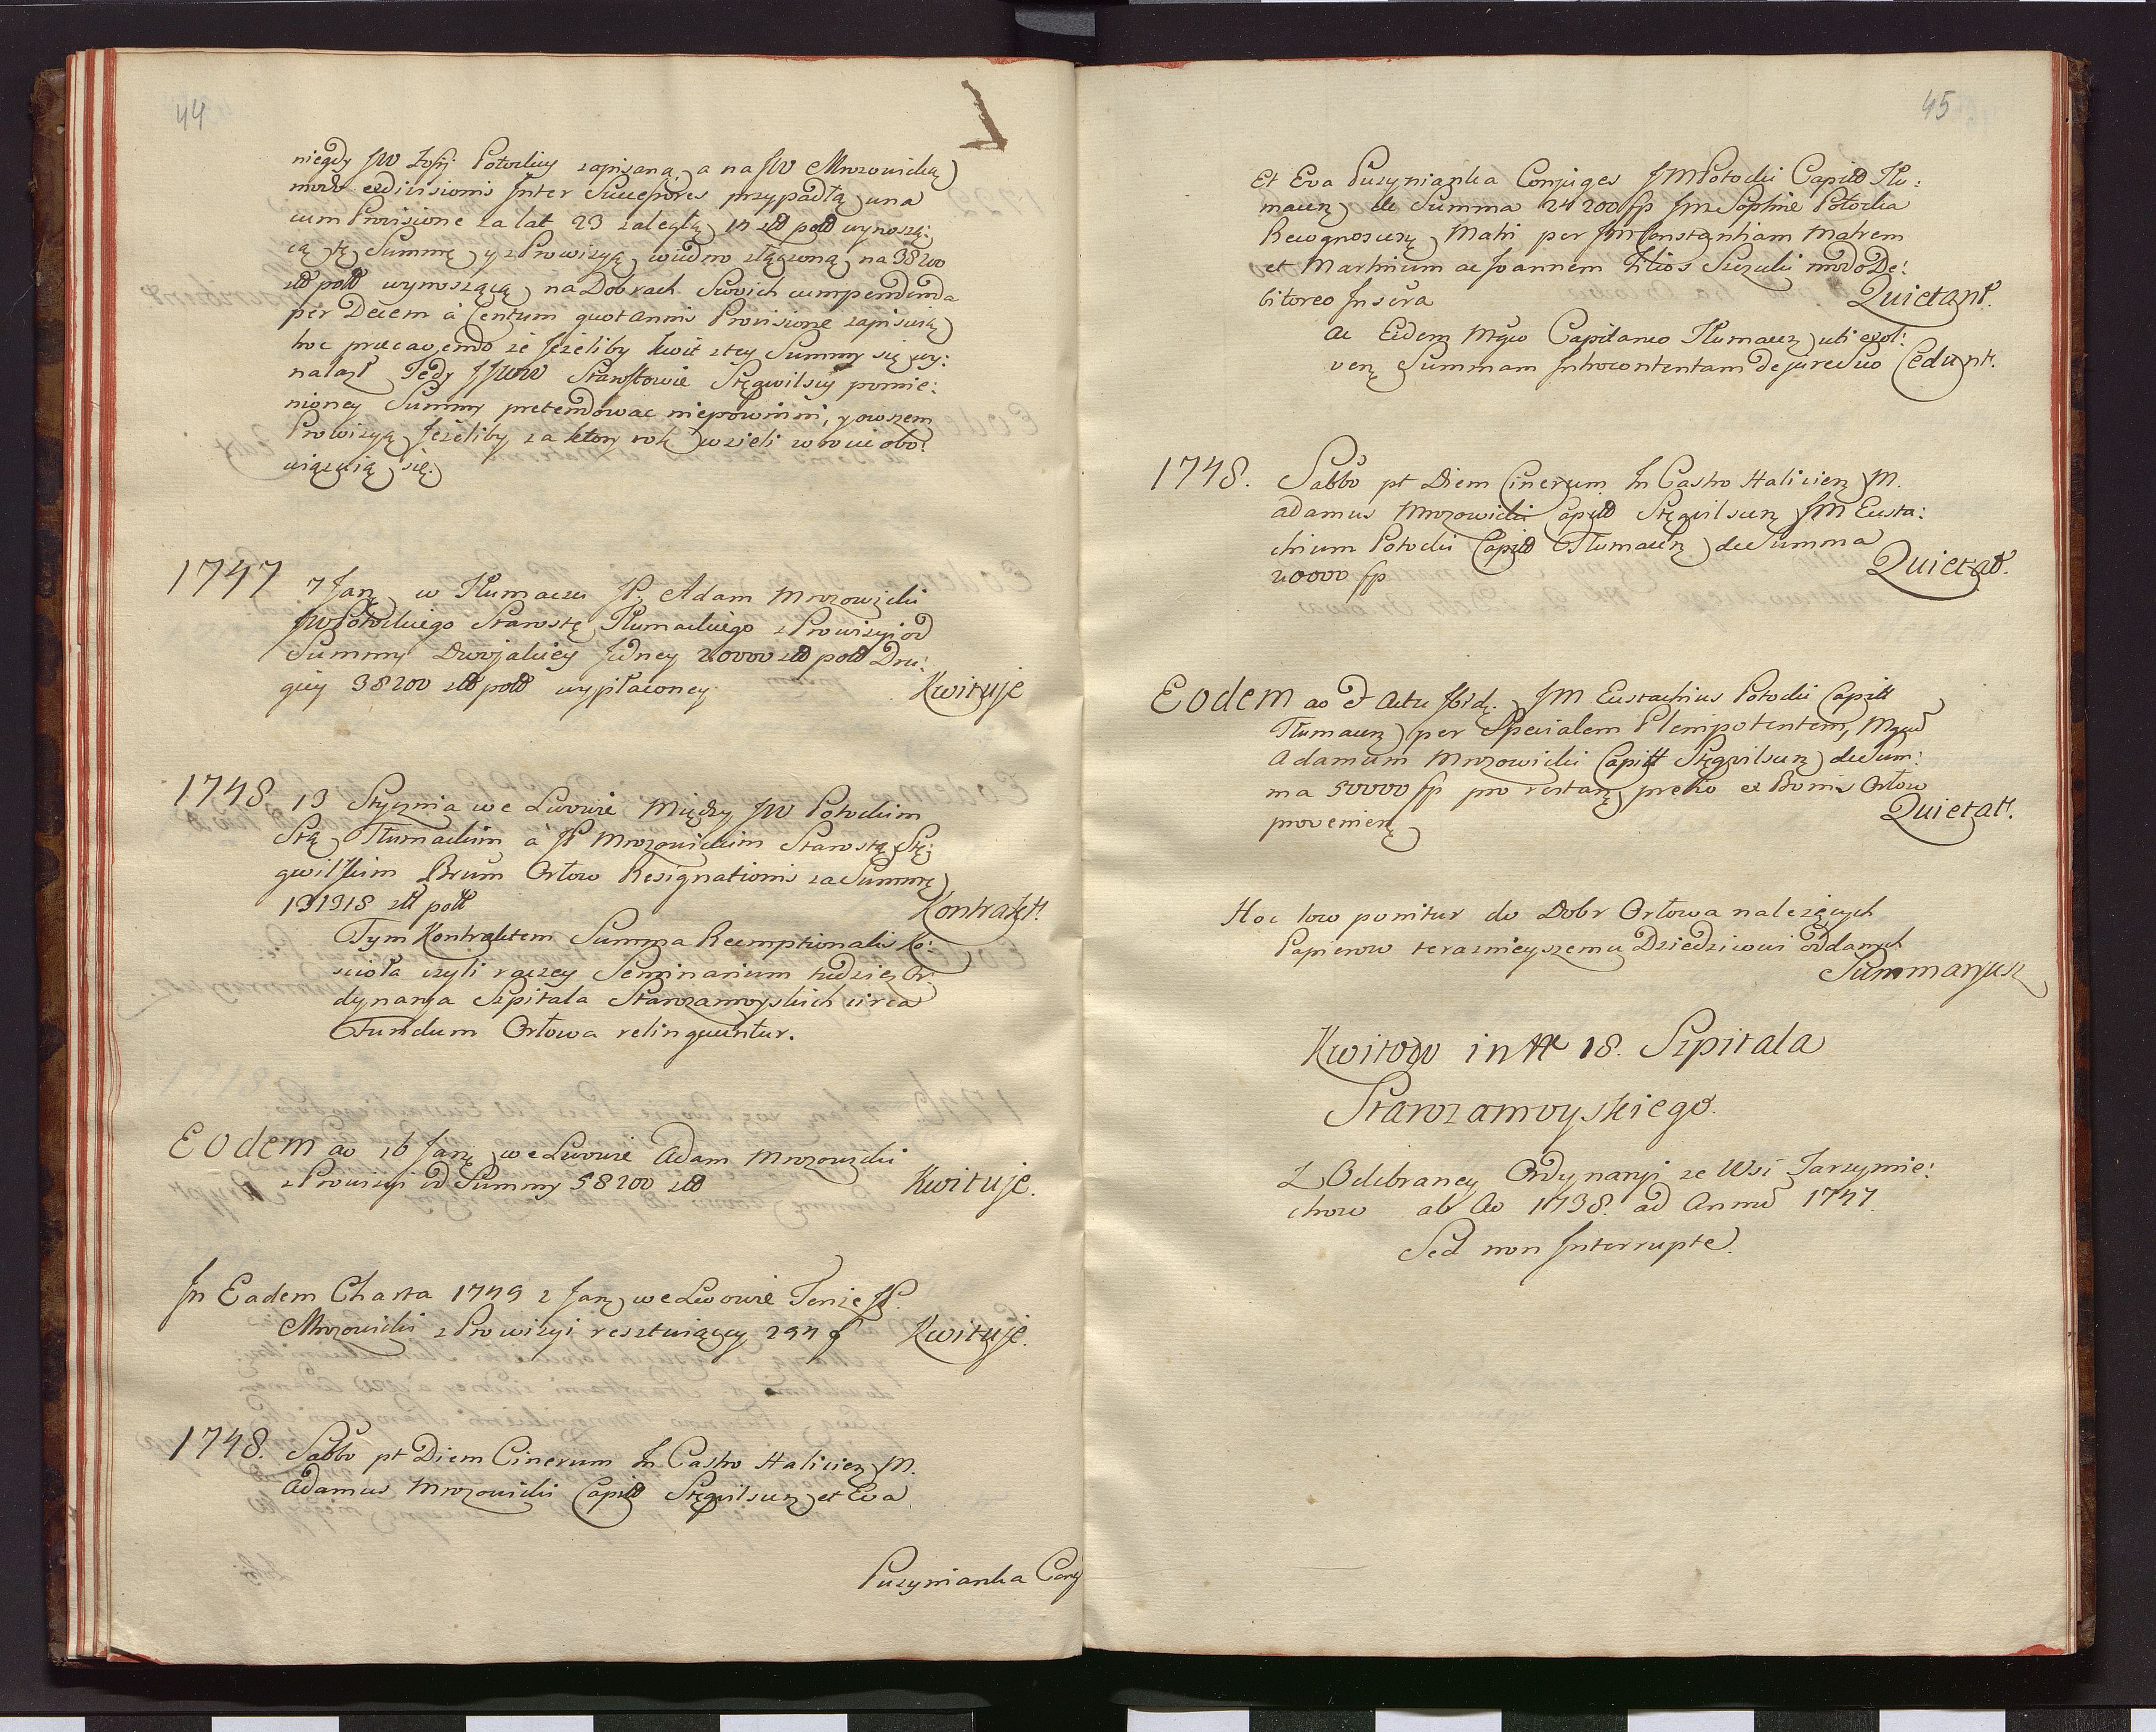 44
niegdy JW Zofij Potockiey zapisaną, a na JW Mrozowicką
modo ex divisionis Inter Successores przypadłą una
cum Provisione za lat 23 zaległą zł pol wynoszą:
cą tę Summę y z Prowizyą wiedno złączoną na 38200
zł pol wynoszącą na Dobrach Swoich cumpendenda
per Decem à Centum quotannis Provisione zapisuią
hoc praecavendo że Jeżeliby kwit z tey Summy się wy:
nalazł Tedy JJWW Starostowie Stęgwilscy pomie:
nioney Summy pretendowac niepowinni, y owszem
Prowizyą Jeżeliby za ktory rok wzieli zwrocic obo:
wiązuią się.
1747 7 Janʒ w Tłumaczu JP. Adam Mrozowicki
JW Potockiego Starostę Tłumackiego z Prowizyi od
Summy Dwojakiey Jedney 20000 zł pol Dru:
giey 38200 zł pol wypłaconey Kwituje
1748 13 Stycznia we Lwowie Między JW Potockim
Stą Tłumackim a JP Mrozowickim Starostą Stę:
gwilskim Brum Orłow Resignationis za Summę
131318 zł pol Kontrakt.
Tym Kontraktem Summa Reemptionalis Ko:
scioła czyli raczey Seminarium tudziez Or:
dynarya Szpitala Starozamoyskich circa
Fundum Orłowa relinquuntur.
Eodem ao 16 Janʒ we Lwowie Adam Mrozowicki
z Prowizyi od Summy 58200 zł Kwituje.
In Eadem Charta 1749 2 Janʒ we Lwowie Tenże JP.
Mrozowicki z Prowizyi resztuiącey 294 f Kwituje.
1748. Sabbo pt Diem Cinerum In Castro Halicien M.
Adamus Mrozowicki Capitt Stęgvilscen et Eva
Puzynianka Conj
45
Et Eva Puzynianka Conjuges JM Potocki Capitt Tłu:
macen de Summa 24200 fp JM Sophiae Potocka
Recognoscen Mahi per JM Constantiam Matrem
et Martinum ac Joannem Filios Szczucki modo De:
bitoreo Inscra Quietant.
ac Eidem Mgco Capitaneo Tłumacen uti exol:
ven Summam Introcontentam de jure suo Cedunt.
1748. Sabbo pt Diem Cinerum In Castro Halicien M.
Adamus Mrozowicki Capitt Stęgvilscen JM Eusta:
chium Potocki Capitt Tłumacen de Summa
20000 fp Quietat.
Eodem ao & Actu Ibid. JM Eustachius Potocki Capitt
Tłumacen per Specialem Plenipotentem, Mgcu
Adamum Mrozowicki Capitt Stęgvilscen de Sum:
ma 50000 fp pro restan pretio ex Bonis Orłow
provenien Quietat.
Hoc loco ponitur do Dobr Orłowa należących
Papierow teraznieyszemu Dziedzicowi oddanych
Summaryusz
Kwitow in 18. Szpitala
Starozamoyskiego.
Z Odebraney Ordynaryi ze Wsi Jarzymie:
chow ab Ao 1738. ad Annu 1747.
Sed non Interrupte.